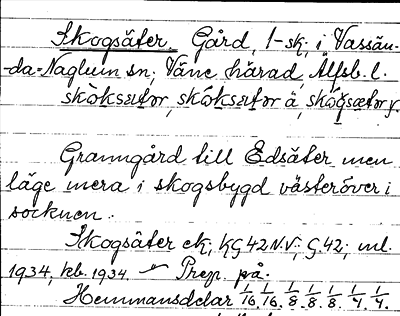 Skogsäter. Gård, 1-sk; i Vassän-
da-Naglum sn; Väne härad, Älfsb. l.
skòksætər, skòksætər ä, skógsætər
Granngård till Edsäter men
läge mera i skogsbygd västeröver i
socknen.
Skogsäter ek; KG42N.V.; G42; ml.
1934, kb. 1934. Prep. på.
Hemmansdelar 1/16, 1/16, 1/8, 1/8, 1/8, 1/4, 1/4.